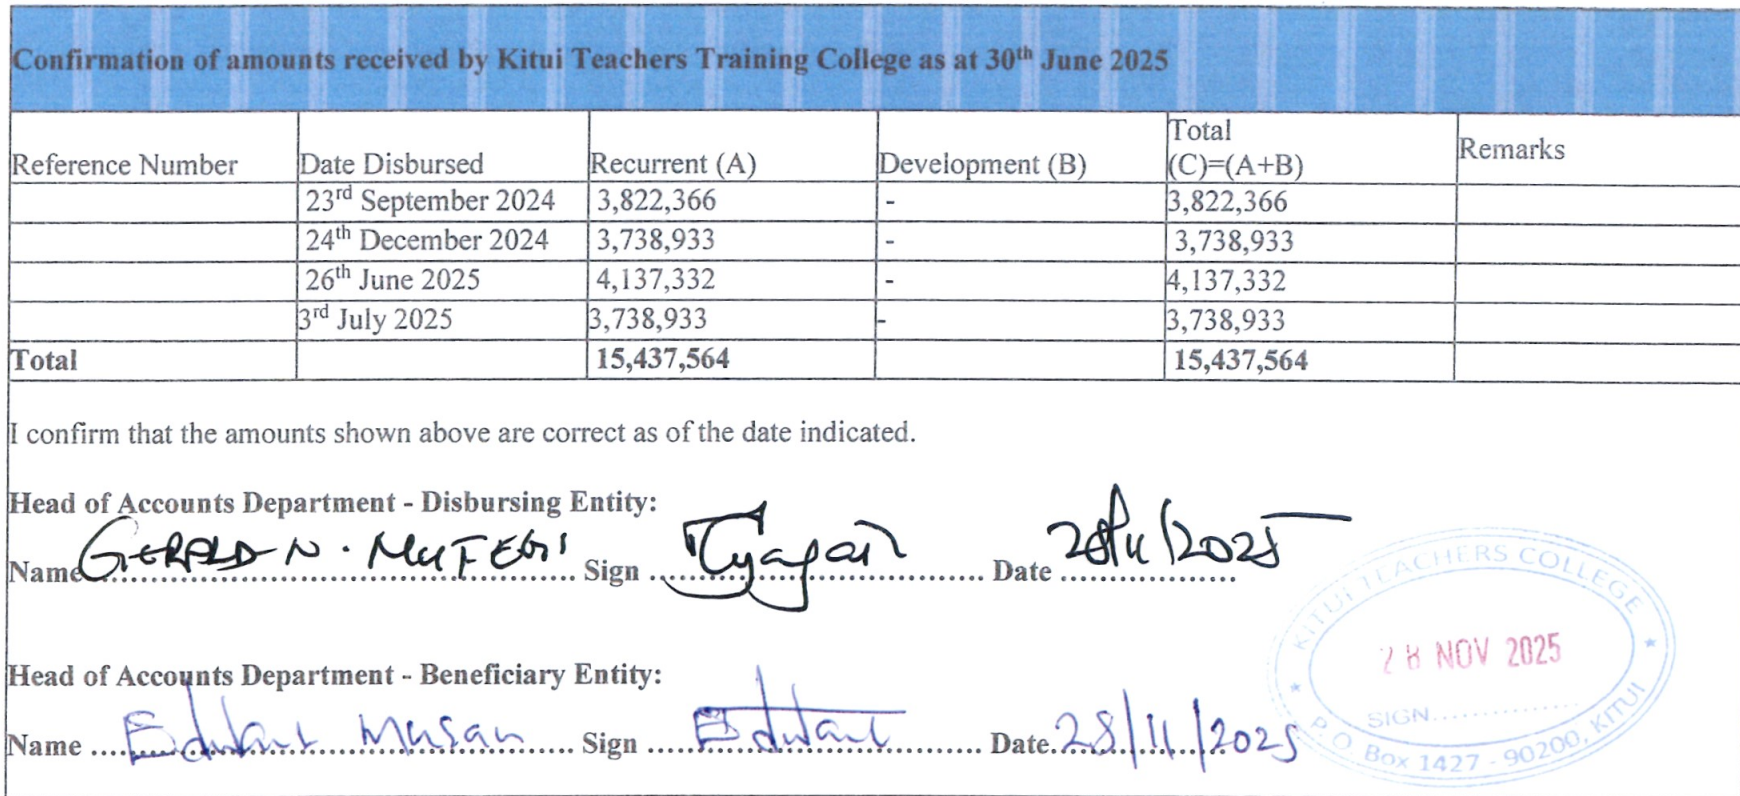 Confirmation of amounts received by Kitui Teachers Training College as at 30th June 2025
Reference Number Date Disbursed Recurrent (A) Development (B) Total (C)=(A+B) Remarks
23rd September 2024 3,822,366 - 3,822,366
24th December 2024 3,738,933 - 3,738,933
26th June 2025 4,137,332 - 4,137,332
3rd July 2025 3,738,933 - 3,738,933
Total 15,437,564 15,437,564
I confirm that the amounts shown above are correct as of the date indicated.
Head of Accounts Department - Disbursing Entity:
Name GERALD N. MUTEGI Sign Date 28/11/2025
Head of Accounts Department - Beneficiary Entity:
Name Sign Date 28/11/2025
KITUI TEACHERS COLLEGE
28 NOV 2025
SIGN
P.O. Box 1427 - 90200, KITUI